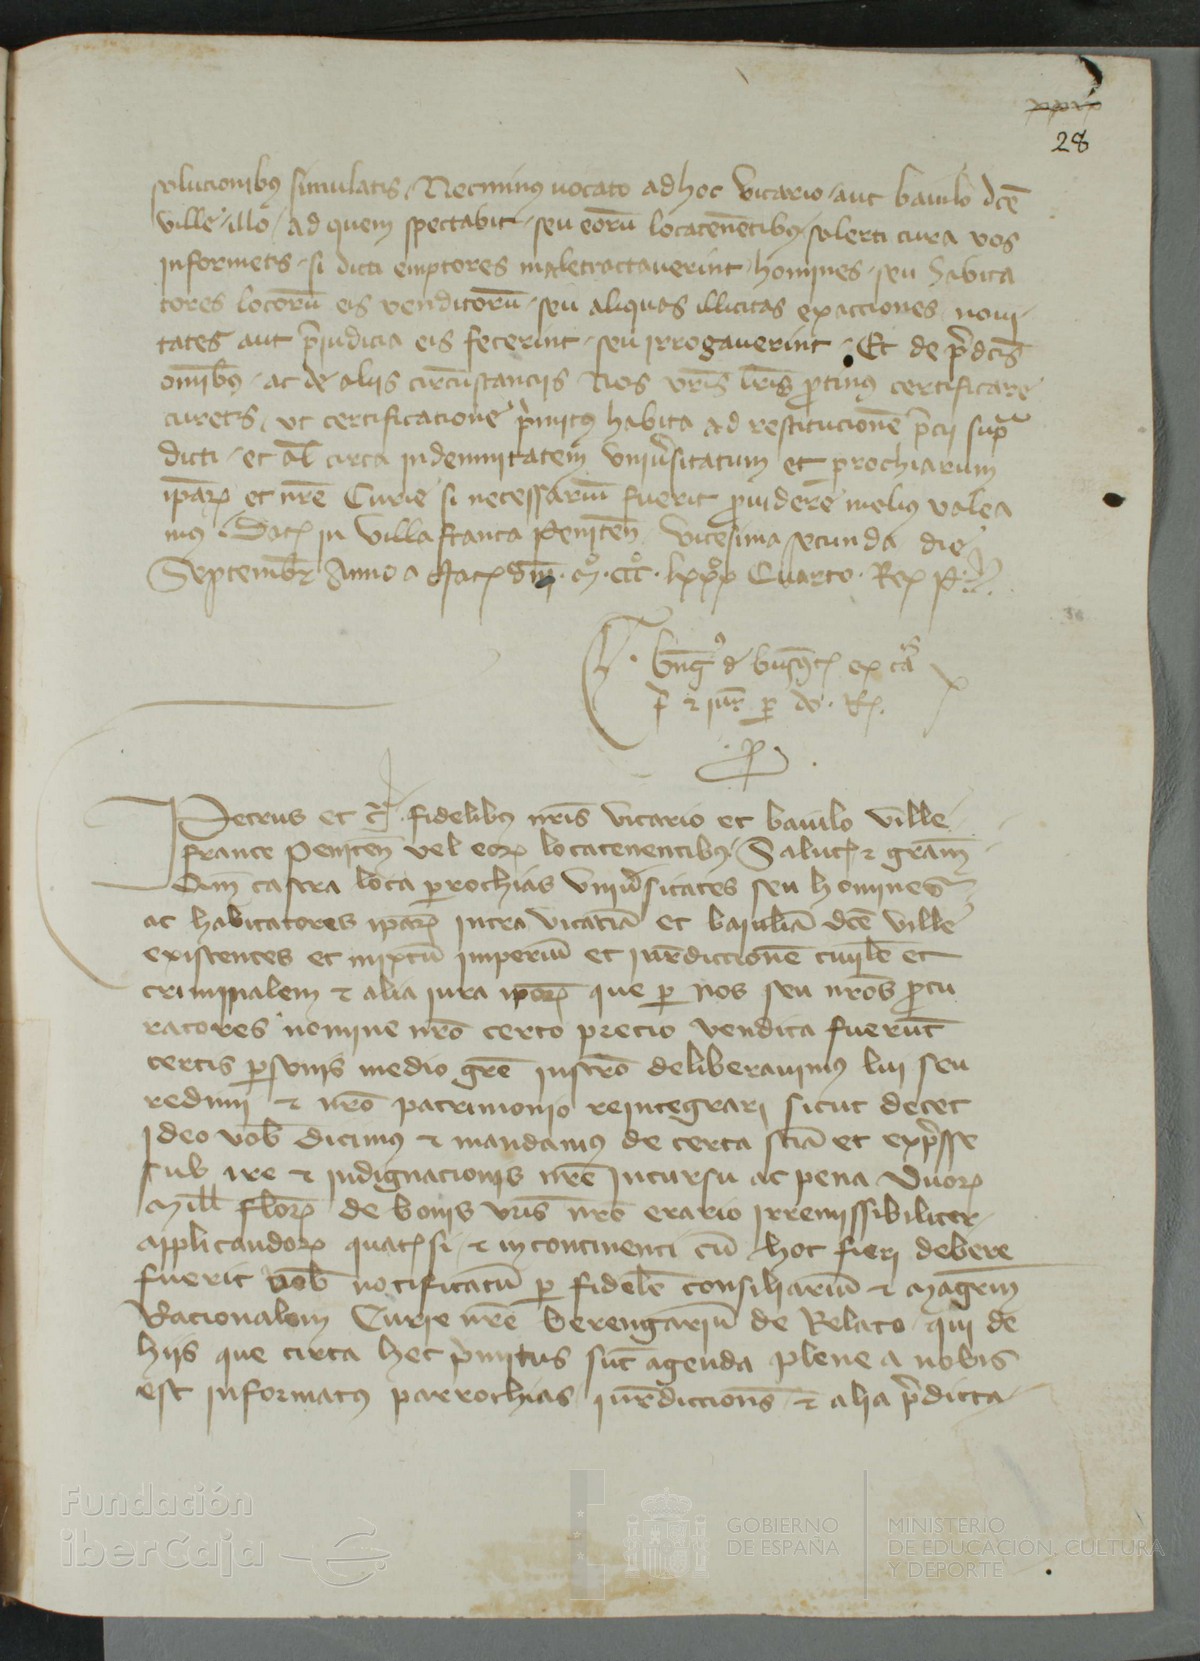 xxviii
28
solucionibus simulatis Necminus vocato ad hoc vicario aut baiulo dce
ville illo ad quem spectabit seu eorū locatenētibus solerti cura vos
informetis si dicti emptores maletractaverint homines seu habita
tores locorū eis venditorū seu aliquas illicitas exacciones novi
tates aut p̄iudicia eis fecerint seu irrogaverint Et de p̄dcīs
omibus ac de aliis circūstanciis Nos vrīs lrīs protinus certificare
curetis ut certificacione p̄mitus habita ad restitucionē p̄cii sup̄
dicti et al circa indempnitatem universitatum et prochiarum
ip̄arum et nrē Curie si necessariū fuerit providere melius valea
mus Dat in Villafranca Penitēn vicesima secunda die
Septembr Anno a Nat dni Mº CCCº Lxxxº Cuarto Rex P
Petrus et c̄ fidelibus nrīs vicario et baiulo ville
france Peniten vel eorum locatenentibus Salut & gram
Cum castra loca parrochias universitates seu homines
ac habitatores iparum intra vicariā et baiuliā dce ville
existentes et mixtū imperiū et iurēdiccionē civilē et
criminalem & alia iura iporum que per nos seu nrōs procu
ratores nomine nrō certo precio vendita fuerūt
certis personis medio grē instrō deliberavimus lui seu
redimi & nrō patrimonio reintegrari sicut decet
Ideo vob dicimus & mandamus de certa sciā et exp̄sse
sub ire & indignacionis nrē Incursu ac pena Duorum
Mill florum de bonis vrīs nrō erario irremissibiliter
applicandorum quat si & incontinenti cū hoc fieri debere
fuerit vob notificatū per fidelē consiliariū & magrēm
Racionalem Curie nrē Berengariū de Relato qui de
hiis que circa hec p̄mitus sūt agenda plene a nobis
est informatus parrochias iurēdicciones & alia p̄dicta
Fundación
iberCaja
GOBIERNO
DE ESPAÑA
MINISTERIO
DE EDUCACIÓN, CULTURA
Y DEPORTE